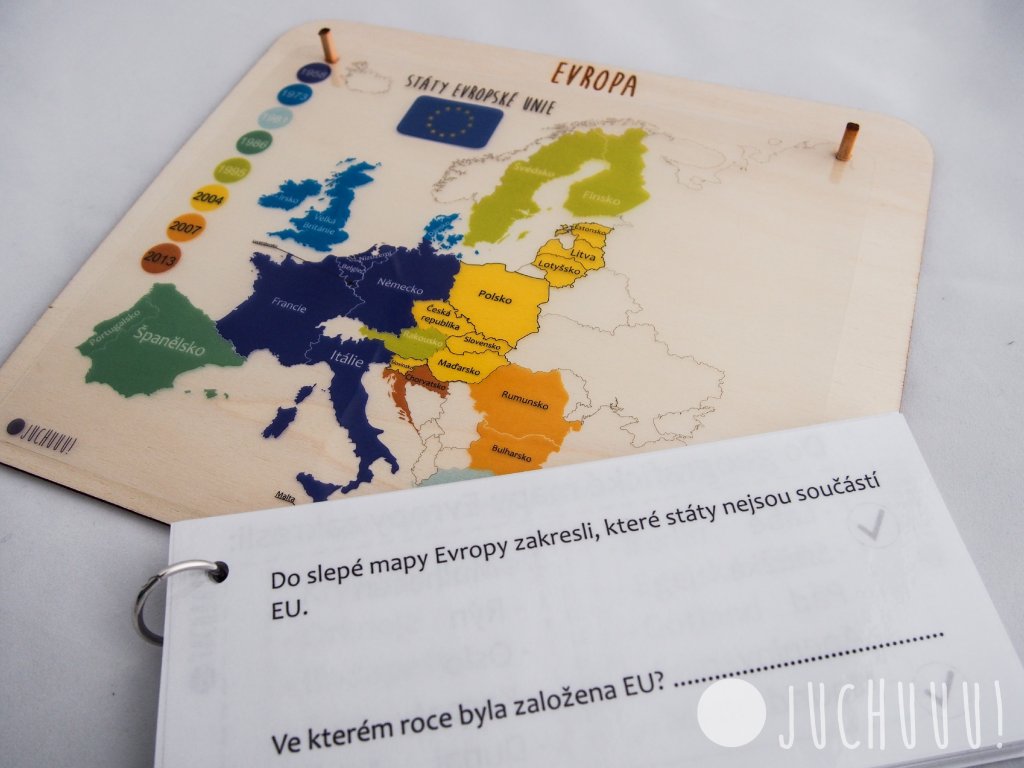 EVROPA
STÁTY EVROPSKÉ UNIE
1958
1973
1981
1986
1995
2004
2007
2013
Švédsko
Finsko
Estonsko
Litva
Lotyšsko
Irsko
Velká
Británie
Nizozemí
Belgie
Německo
Polsko
Francie
Česká
republika
Slovensko
Rakousko
Maďarsko
Portugalsko
Španělsko
Itálie
Chorvatsko
Rumunsko
Bulharsko
Malta
JUCHUUU!
Do slepé mapy Evropy zakresli, které státy nejsou součástí
EU.
Ve kterém roce byla založena EU? ......................................
JUCHUUU!